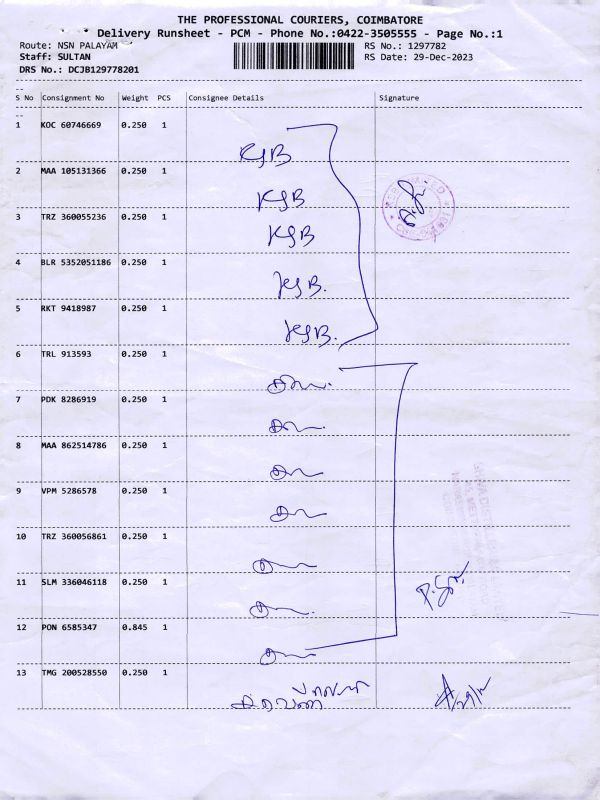 THE PROFESSIONAL COURIERS, COIMBATORE
Delivery Runsheet - PCM - Phone No.:0422-3505555 - Page No.:1
Route: NSN PALAYAM RS No.: 1297782
Staff: SULTAN RS Date: 29-Dec-2023
DRS No.: DCJB129778201
--
S No Consignment No Weight PCS Consignee Details Signature
--
1 KOC 60746669 0.250 1
KSB
2 MAA 105131366 0.250 1
KSB
3 TRZ 360055236 0.250 1
KSB
4 BLR 5352051186 0.250 1
KSB.
5 RKT 9418987 0.250 1
KSB.
6 TRL 913593 0.250 1
7 PDK 8286919 0.250 1
8 MAA 862514786 0.250 1
9 VPM 5286578 0.250 1
10 TRZ 360056861 0.250 1
11 SLM 336046118 0.250 1
12 PON 6585347 0.845 1
13 TMG 200528550 0.250 1